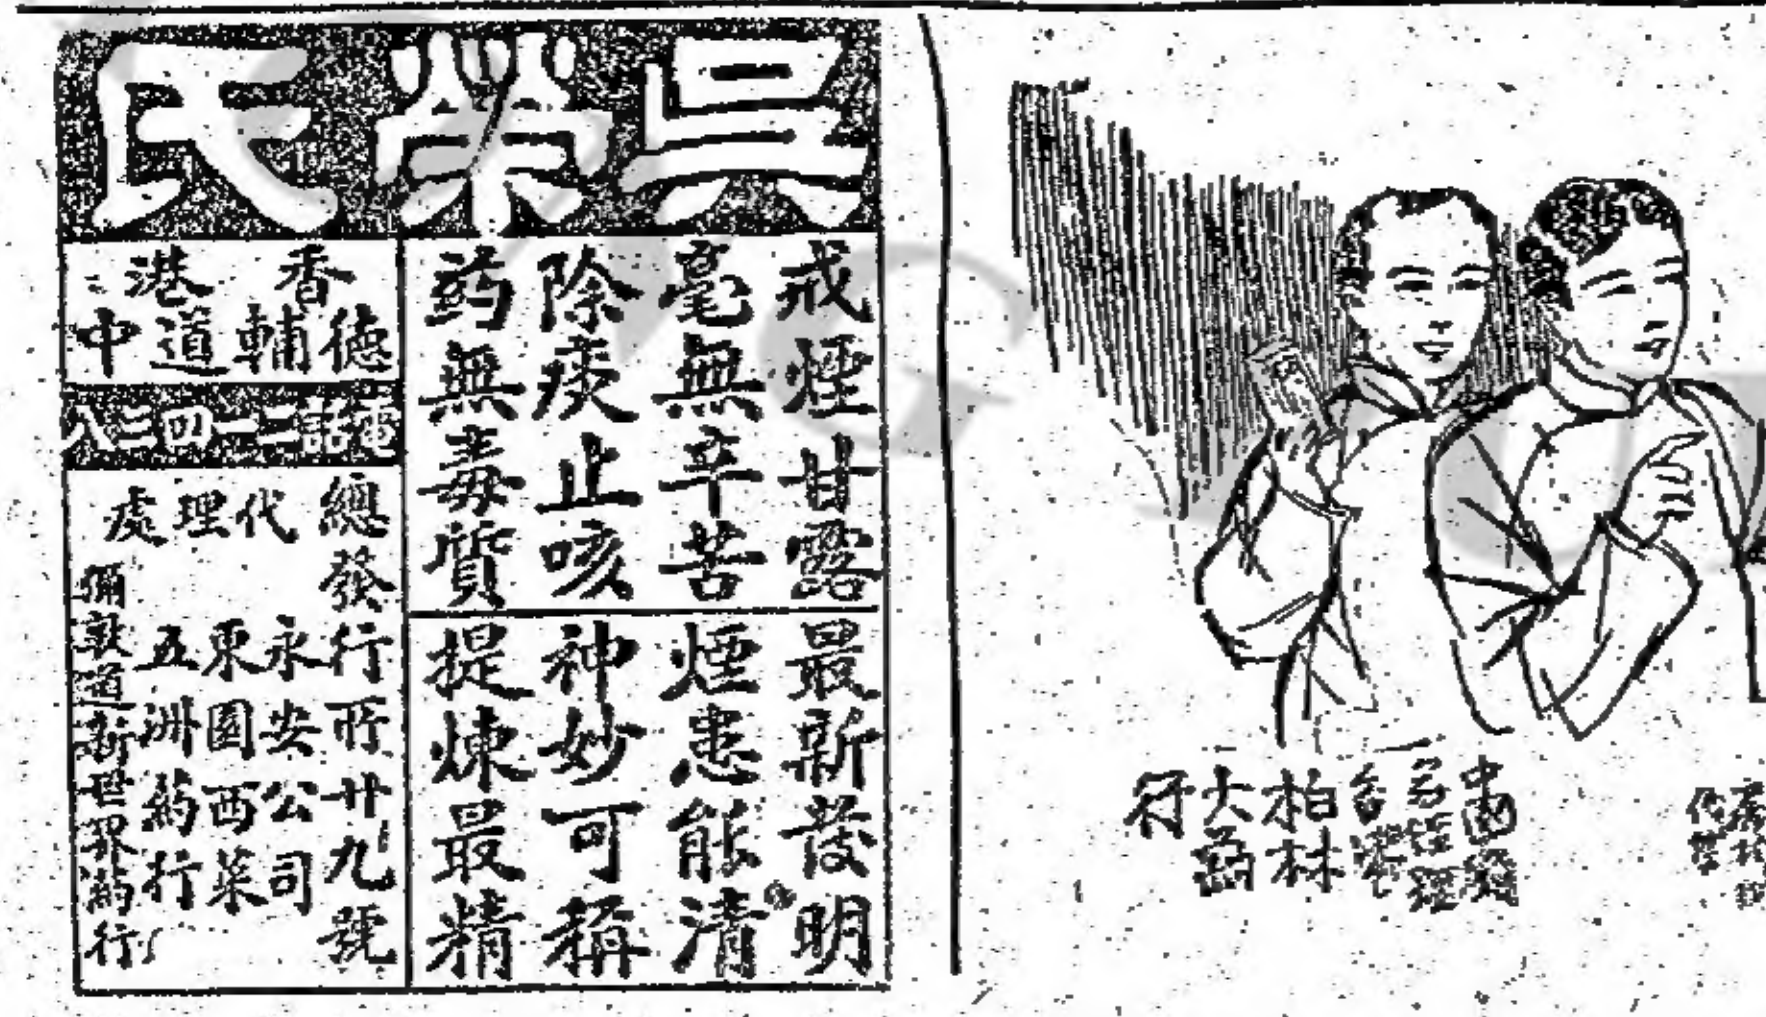 吳榮氏
戒煙甘露
毫無辛苦
除痰止咳
药無毒質
最新發明
煙患能清
神妙可稱
提煉最精
香港
德輔道中
電話二一四二八
總發行所廿九號
代理處
永安公司
東園西菜
五洲葯行
彌敦道新世界葯行
中國總
司經理
柏林
大葯
行